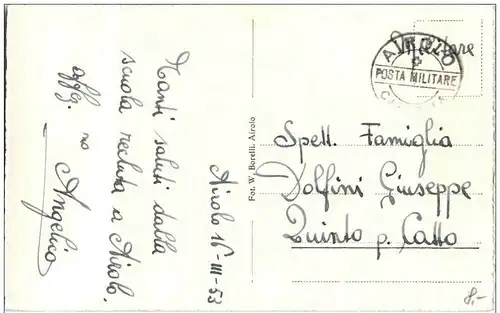 Airolo 16-III-53
Tanti saluti dalla
scuola recluta a Airolo.
affz. vo Angelico
Fot. W. Borelli, Airolo
Militare
AIROLO
POSTA MILITARE
Spett. Famiglia
Dolfini Giuseppe
Quinto p. Catto
8,-